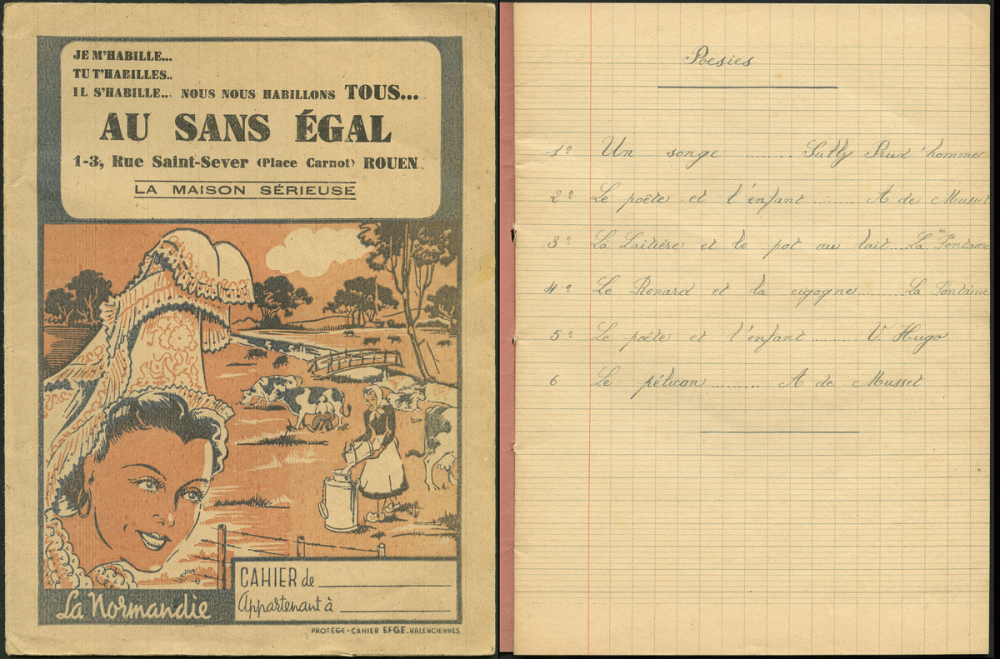 JE M'HABILLE...
TU T'HABILLES..
IL S'HABILLE... NOUS NOUS HABILLONS TOUS...
AU SANS ÉGAL
1-3, Rue Saint-Sever (Place Carnot) ROUEN
LA MAISON SÉRIEUSE
CAHIER de
Appartenant à
La Normandie
PROTÈGE-CAHIER EFGE. VALENCIENNES
Poésies
1º Un songe ......... Sully Prud'homme
2º Le poète et l'enfant ......... A de Musset
3º La Laitière et le pot au lait... La Fontaine
4º Le Renard et la cigogne....... La Fontaine
5º Le poète et l'enfant ....... V. Hugo
6 Le pélican ......... A de Musset